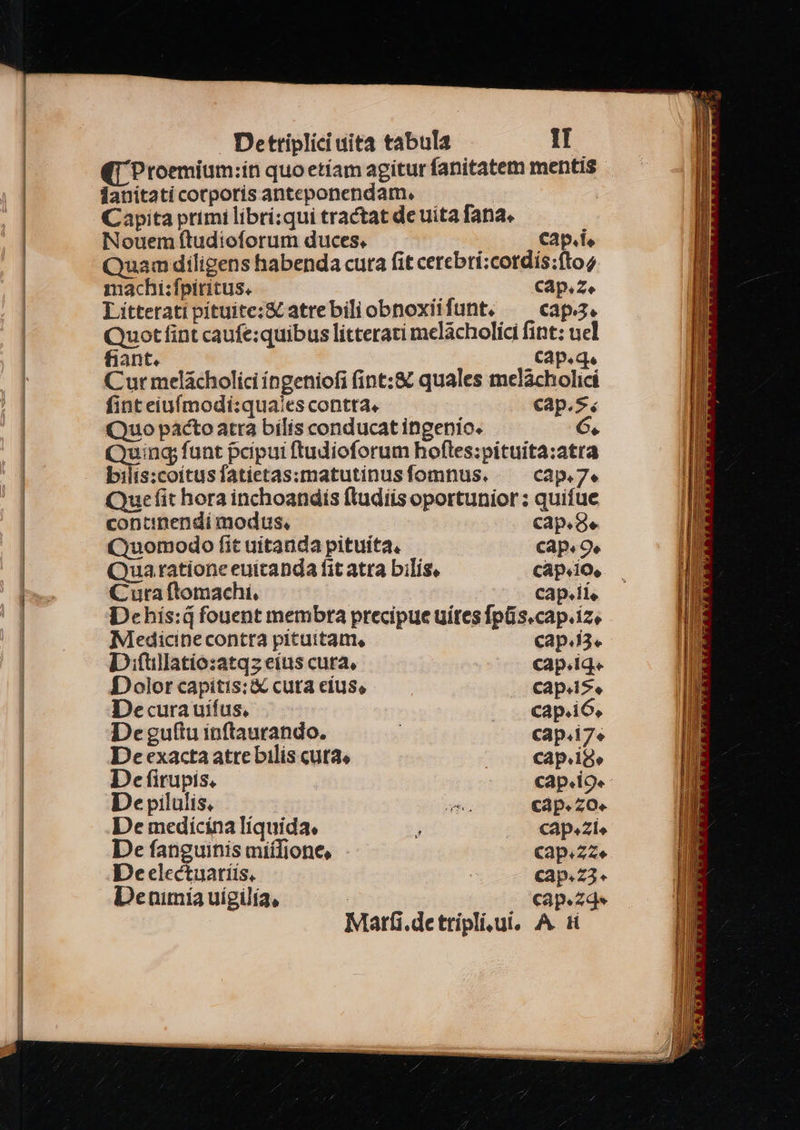 De triplici uita tabula II
⁋ Proemium:in quo etiam agitur ſanitatem mentis
ſanitati corporis anteponendam.
Capita primi libri:qui tractat de uita ſana.
Nouem ſtudioſorum duces. cap.i.
Quam diligens habenda cura ſit cerebri:cordis:ſtoꝫ
machi:ſpiritus. cap.2.
Litterati pituite:& atre bili obnoxii ſunt. cap.3.
Quot ſint cauſe:quibus litterati melācholici ſint: uel
fiant. cap.4.
Cur melācholici ingenioſi ſint:& quales melācholici
ſint eiuſmodi:quales contra. cap.5.
Quo pacto atra bilis conducat ingenio. 6.
Quinqꝫ ſunt p̄cipui ſtudioſorum hoſtes:pituita:atra
bilis:coitus ſatietas:matutinus ſomnus. cap.7.
Que ſit hora inchoandis ſtudiis oportunior : quiſue
continendi modus. cap.8.
Quomodo ſit uitanda pituita. cap.9.
Qua ratione euitanda ſit atra bilis. cap.10.
Cura ſtomachi. cap.11.
De his:q̄ fouent membra precipue uires ſpūs.cap.12.
Medicine contra pituitam. cap.13.
Diſtillatio:atqꝫ eius cura. cap.14.
Dolor capitis:& cura eius. cap.15.
De cura uiſus. cap.16.
De guſtu inſtaurando. cap.17.
De exacta atre bilis cura. cap.18.
De ſirupis. cap.19.
De pilulis. cap.20.
De medicina liquida. cap.21.
De ſanguinis miſſione. cap.22.
De electuariis. cap.23.
De nimia uigilia. cap.24.
Marſi.de tripli.ui. A ii